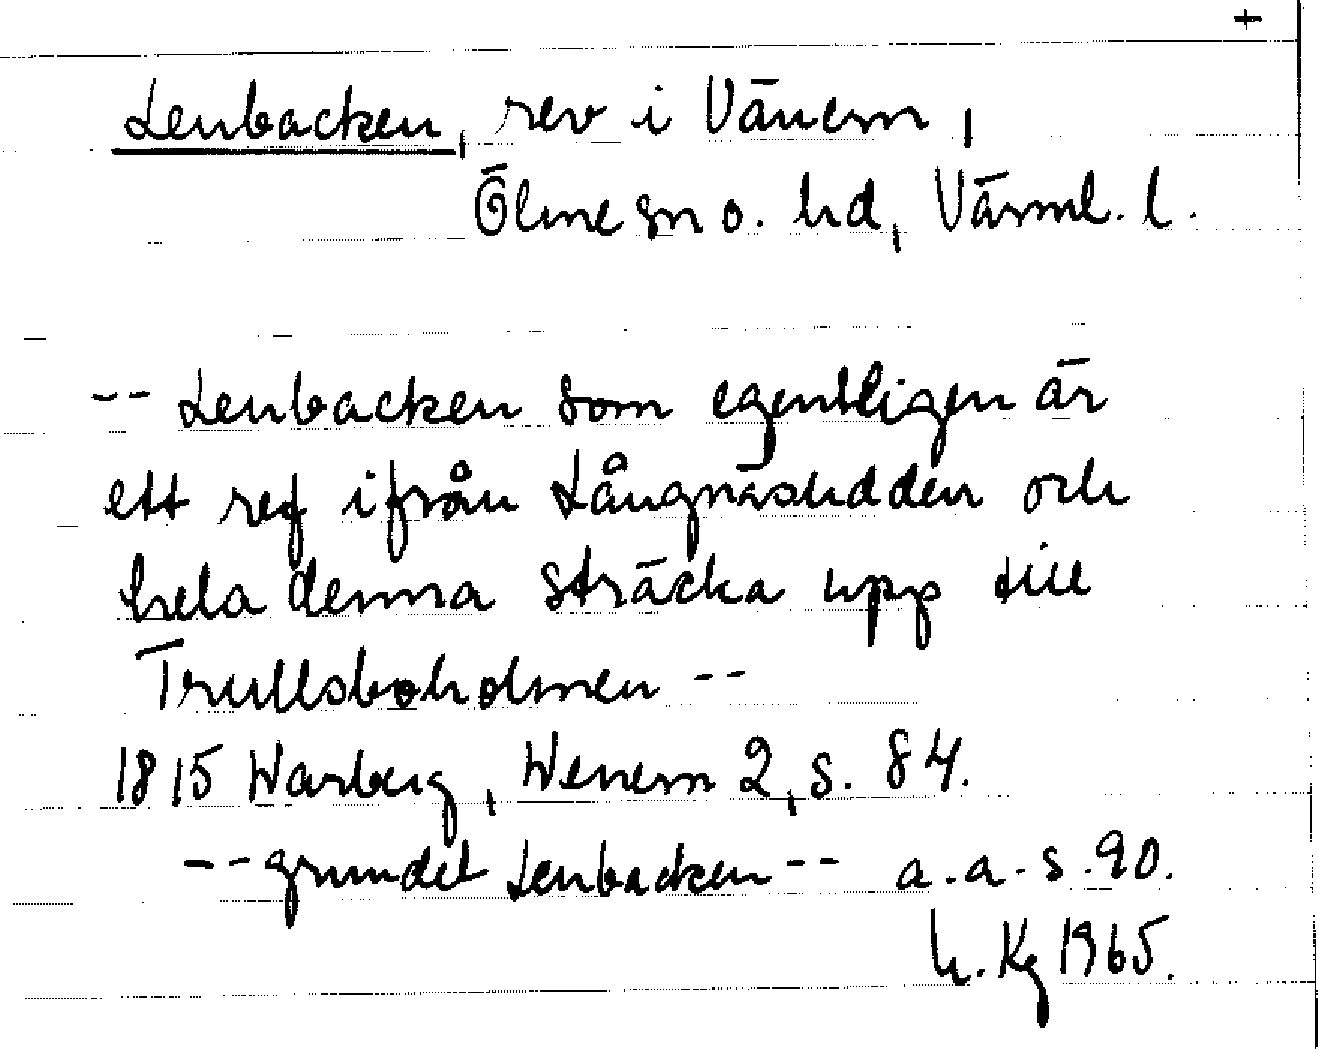 +
Lenbacken, rev i Vänern,
Ölme sn o. hd, Värml. l.
-- Lenbacken som egentligen är
ett ref ifrån Långnäsudden och
hela denna sträcka upp till
Trullsboholmen --
1815 Warberg, Wenern 2, s. 84.
-- grundet Lenbacken -- a. a. s. 90.
h. Kg 1965.